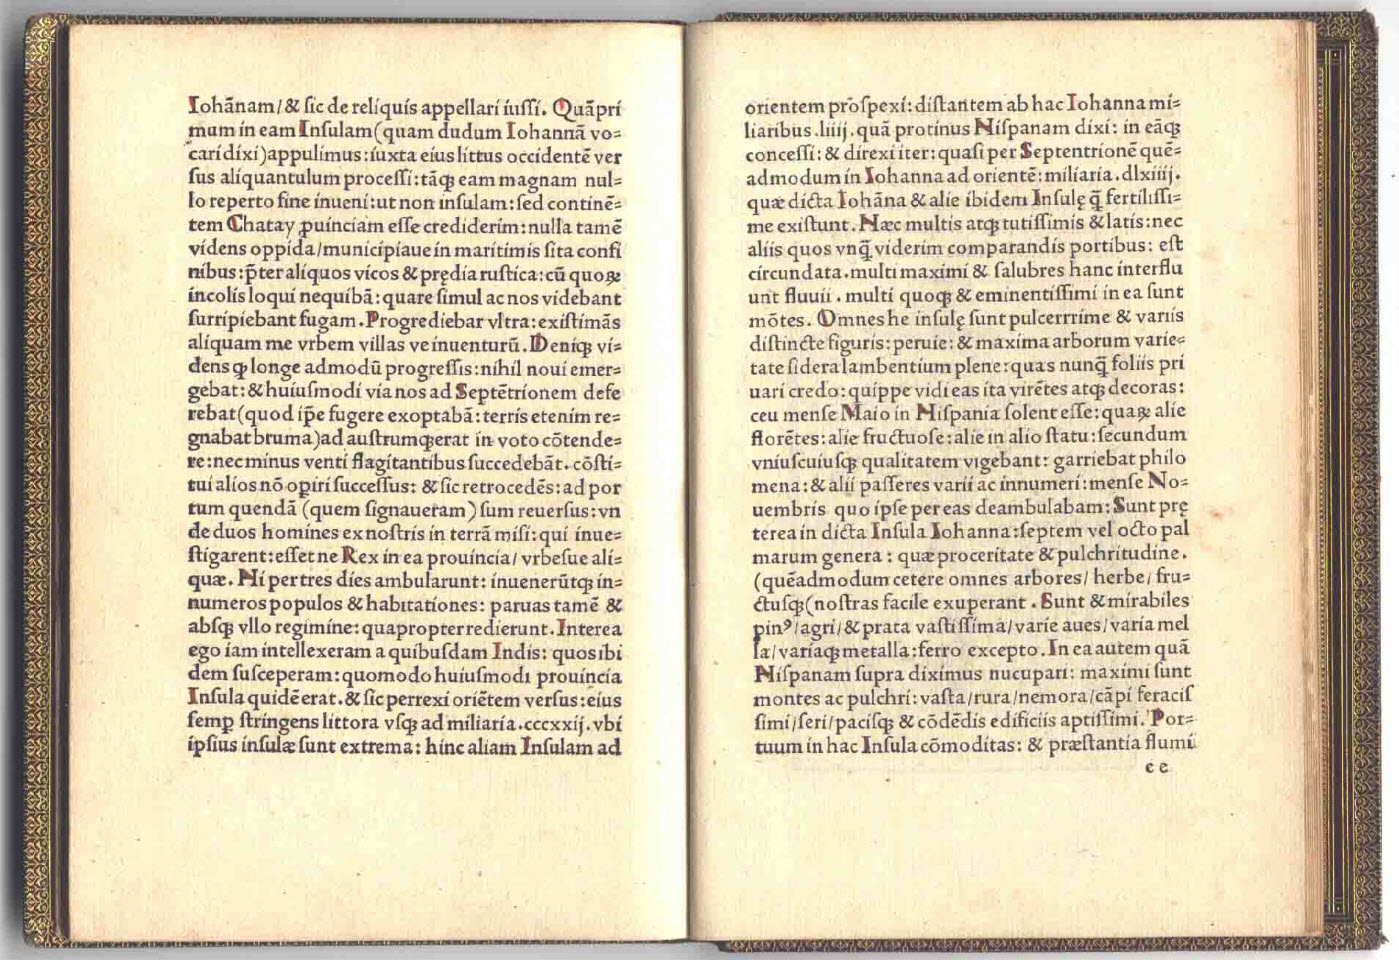 Iohãnam/ & sic de reliquis appellari iussi. Quãpri
mum in eam Insulam (quam dudum Iohannã vo=
cari dixi) appulimus: iuxta eius littus occidentẽ ver
sus aliquantulum processi: tãqꝫ eam magnam nul=
lo reperto fine inueni: ut non insulam: sed continẽ=
tem Chatay ꝓuinciam esse crediderim: nulla tamẽ
videns oppida/ municipiaue in maritimis sita confi
nibus: p̃ter aliquos vicos & prędia rustica: cũ quoꝝ
incolis loqui nequibã: quare simul ac nos videbant
surripiebant fugam. Progrediebar vltra: existimãs
aliquam me vrbem villas ve inuenturũ. Deniqꝫ vi=
dens ꝙ longe admodũ progressis: nihil noui emer=
gebat: & huiusmodi via nos ad Septẽtrionem defe
rebat (quod ip̃e fugere exoptabã: terris etenim re=
gnabat bruma) ad austrumqꝫ erat in voto cõtende=
re: nec minus venti flagitantibus succedebãt. cõsti=
tui alios nõ oꝑiri successus: & sic retrocedẽs: ad por
tum quendã (quem signaueram) sum reuersus: vn
de duos homines ex nostris in terrã misi: qui inue=
stigarent: esset ne Rex in ea prouincia/ vrbesue ali=
quæ. Hi per tres dies ambularunt: inuenerũtqꝫ in=
numeros populos & habitationes: paruas tamẽ &
absqꝫ vllo regimine: quapropter redierunt. Interea
ego iam intellexeram a quibusdam Indis: quos ibi
dem susceperam: quomodo huiusmodi prouincia
Insula quidẽ erat. & sic perrexi oriẽtem versus: eius
semꝑ stringens littora vsqꝫ ad miliaria .cccxxij. vbi
ipsius insulæ sunt extrema: hinc aliam Insulam ad
orientem prõspexi: distantem ab hac Iohanna mi=
liaribus .liiij. quã protinus Hispanam dixi: in eãqꝫ
concessi: & direxi iter: quasi per Septentrionẽ quẽ=
admodum in Iohanna ad orientẽ: miliaria .dlxiiij.
quæ dicta Iohãna & alie ibidem Insulę q̃ fertilissi=
me existunt. Hæc multis atqꝫ tutissimis & latis: nec
aliis quos vnq̃ viderim comparandis portibus: est
circundata. multi maximi & salubres hanc interflu
unt fluuii. multi quoqꝫ & eminentissimi in ea sunt
mõtes. Omnes he insulę sunt pulcerrrime & variis
distincte figuris: peruie: & maxima arborum varie=
tate sidera lambentium plene: quas nunq̃ foliis pri
uari credo: quippe vidi eas ita virẽtes atqꝫ decoras:
ceu mense Maio in Hispania solent esse: quaꝝ alie
florẽtes: alie fructuose: alie in alio statu: secundum
vniuscuiusqꝫ qualitatem vigebant: garriebat philo
mena: & alii passeres varii ac innumeri: mense No=
uembris quo ipse per eas deambulabam: Sunt prę
terea in dicta Insula Iohanna: septem vel octo pal
marum genera: quæ proceritate & pulchritudine.
(quẽadmodum cetere omnes arbores/ herbe/ fru=
ctusqꝫ (nostras facile exuperant. Sunt & mirabiles
pinꝰ/ agri/ & prata vastissima/ varie aues/ varia mel
la/ variaqꝫ metalla: ferro excepto. In ea autem quã
Hispanam supra diximus nucupari: maximi sunt
montes ac pulchri: vasta/ rura/ nemora/ cãpi feracis
simi/ seri/ pacisqꝫ & cõdẽdis edificiis aptissimi. Por=
tuum in hac Insula cõmoditas: & præstantia flumi
e e